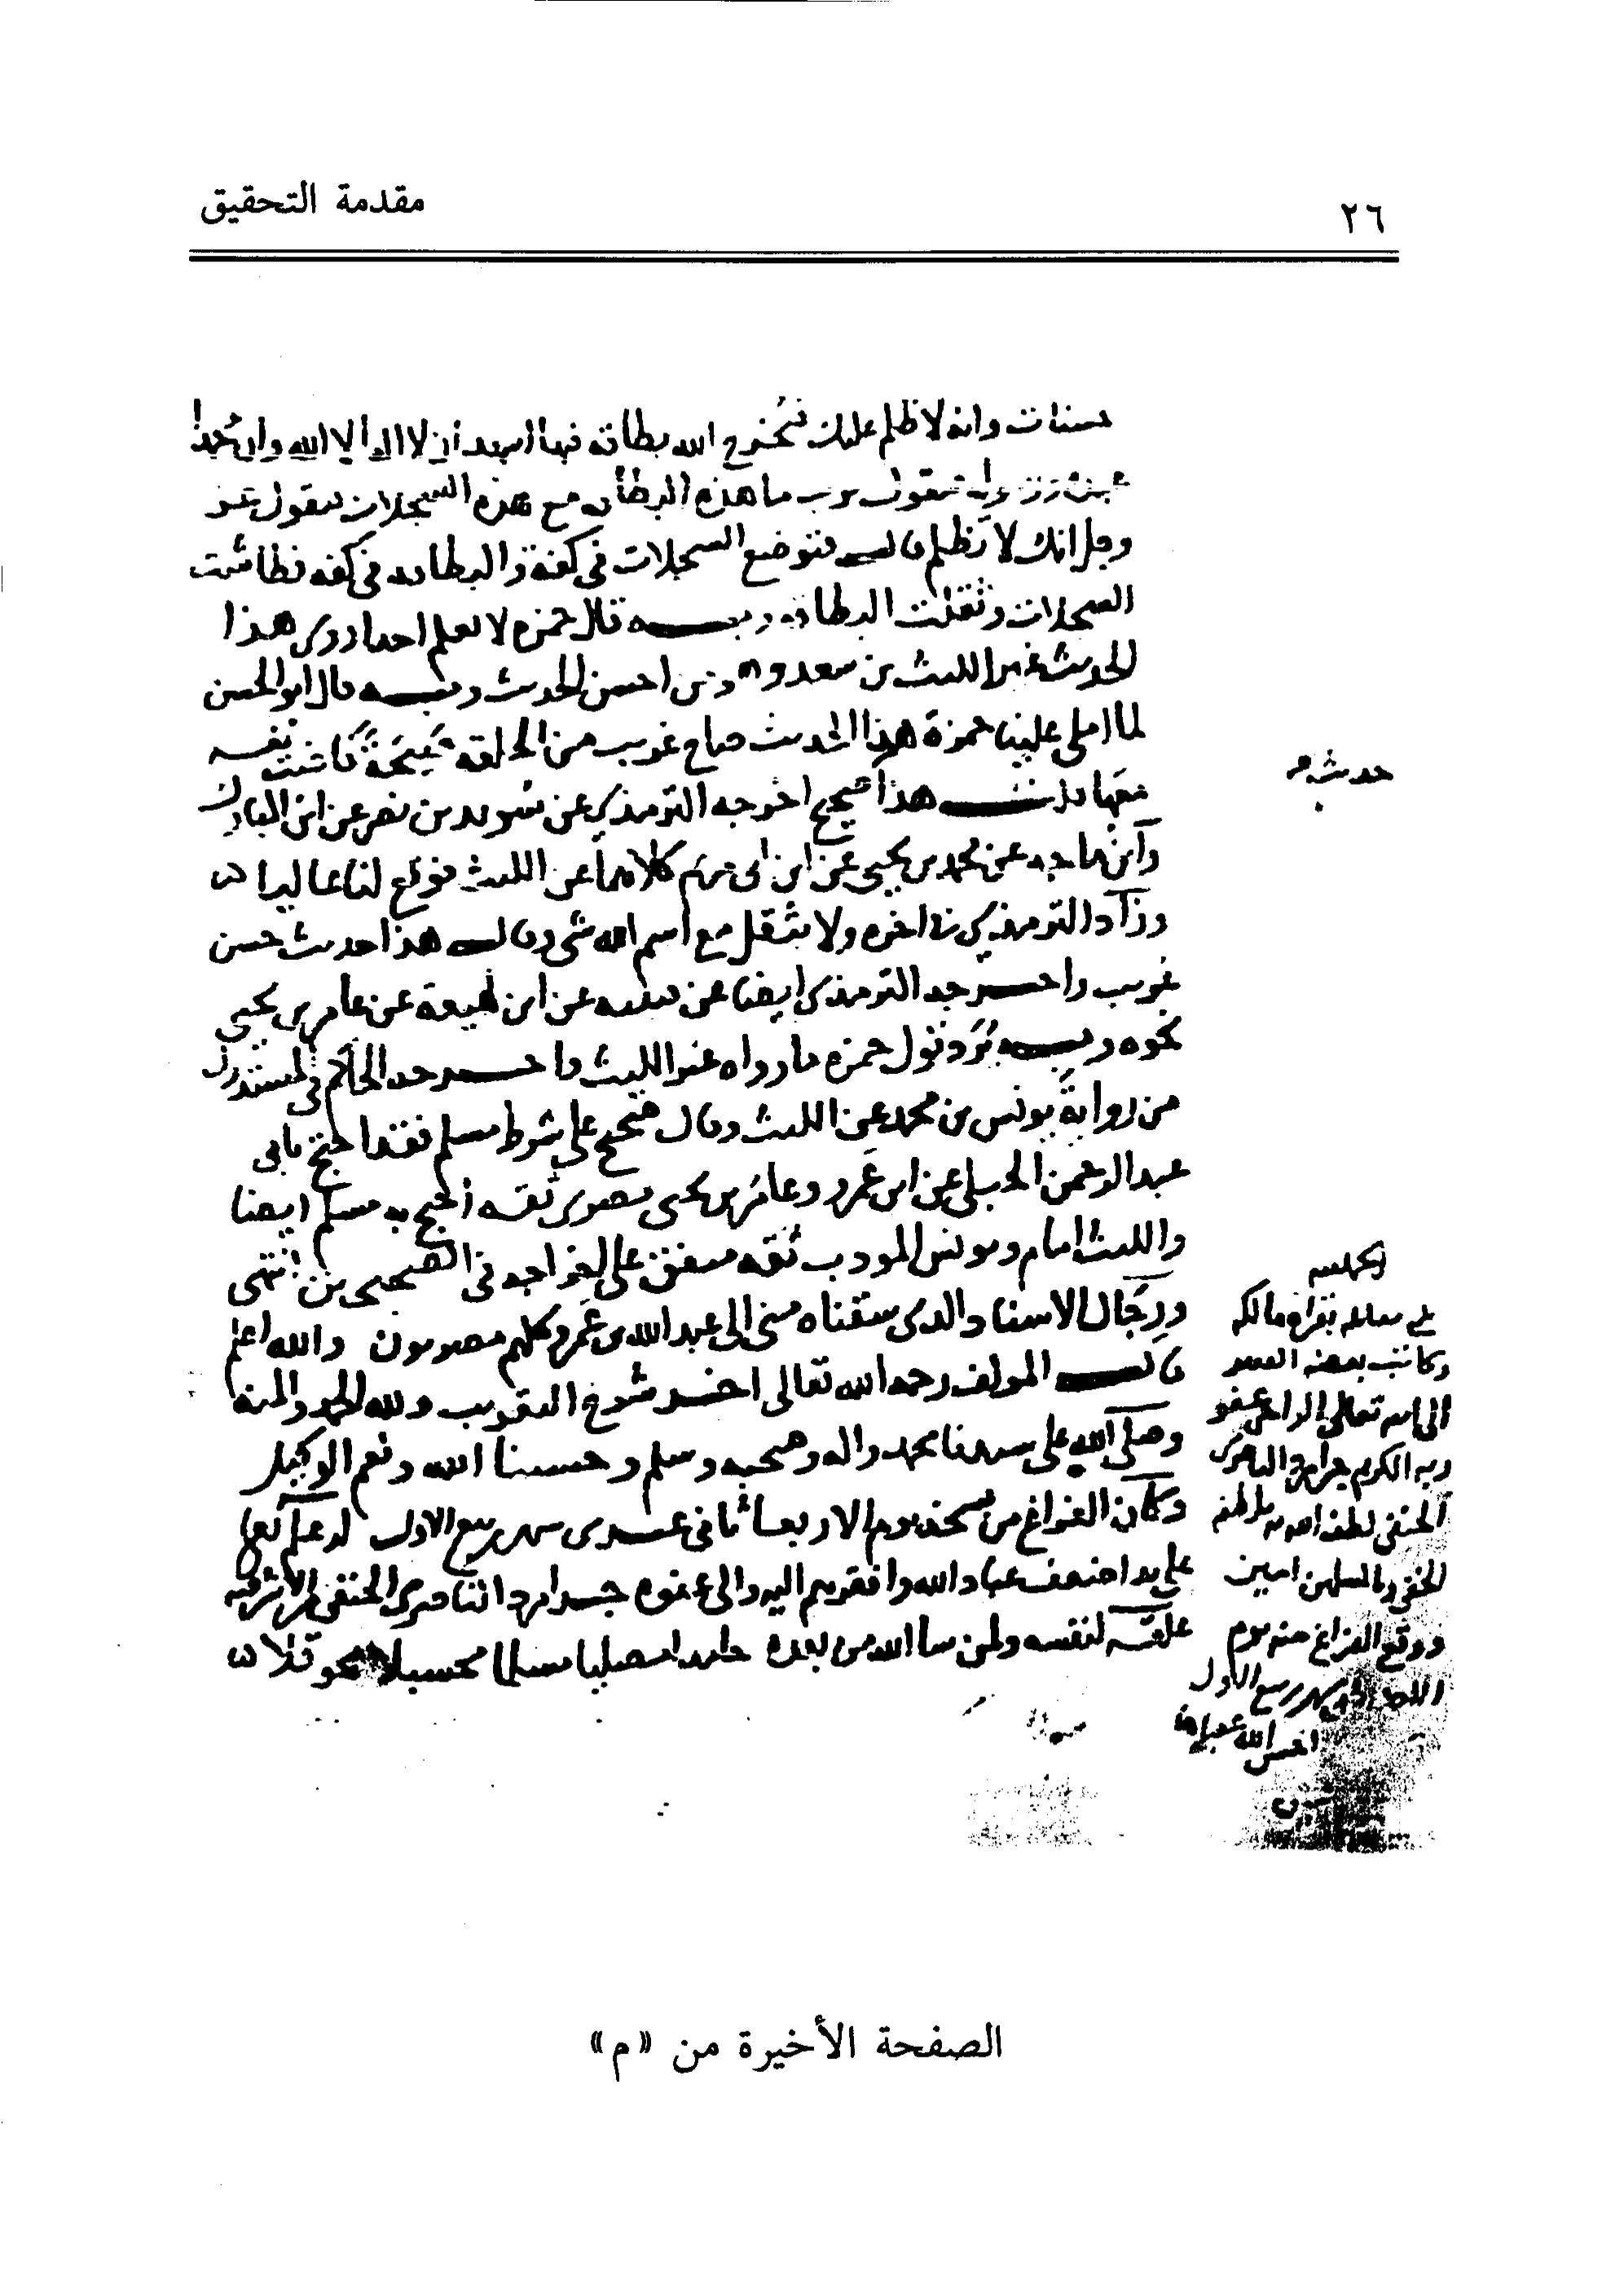 ٢٦
مقدمة التحقيق
حسنات وانه لا ظلم عليك فتخرج الله بطاقه فيها اشهد ان لا اله الا الله وان محمدا
عبده ورسوله فيقول يرب ما هذه البطاقه مع هذه السجلات فيقول عز
وجل انك لا تظلم قال فتوضع السجلات في كفة والبطاقه في كفه فطاشت
السجلات وثقلت البطاقه وبه قال حمزه لا نعلم احدا روى هذا
الحديث غير الليث بن سعد وهو من احسن الحديث وبه قال ابو الحسن
لما املى علينا حمزة هذا الحديث صاح غريب من الحلقه صيحة فاضت نفسه
معها قلت هذا صحيح اخرجه الترمذي عن سويد بن نصر عن ابن المبارك
وابن ماجه عن محمد بن يحيى عن ابن ابى مريم كلاهما عن الليث فوقع لنا عاليا
وزاد الترمذي في اخره ولا يثقل مع اسم الله شي وقال هذا حديث حسن
غريب واخرجه الترمذي ايضا عن قتيبه عن ابن لهيعة عن عامر بن يحيى
نحوه وبه يرد قول حمزه ما رواه غير الليث واخرجه الحاكم في المستدرك
من رواية يونس بن محمد عن الليث وقال صحيح على شرط مسلم فقد احتج بابي
عبد الرحمن الحبلي عن ابن عمرو وعامر بن يحيى مصري ثقه احتج به مسلم ايضا
والليث امام ويونس المودب ثقه متفق على اخراجه في الصحيحين انتهى
ورجال الاسناد الذي سقناه منى الى عبد الله بن عمرو كلهم مصريون والله اعلم
قال المولف رحمه الله تعالى اخر شرح التقريب ولله الحمد والمنه
وصلى الله على سيدنا محمد واله وصحبه وسلم وحسبنا الله ونعم الوكيل
وكان الفراغ من نسخه يوم الاربعا ثانى عشرى شهر ربيع الاول
على يد اضعف عباد الله وافقرهم اليه والى عفوه جرامرد الناصرى الحنفى
علقه لنفسه ولمن شا الله من بعده حامدا مصليا مسلما محسبلا محوقلا
حديث
الحمد لله
بلغ مقابله بقراة مالكه
وكاتب بعضه الفقير
الى الله تعالى الراجى عفو
ربه الكريم جرامرد الناصرى
الحنفى لطف الله به بلطفه
الخفى والمسلمين امين
ووقع الفراغ منه يوم
شهر ربيع الاول
احسن الله
الصفحة الأخيرة من «م»